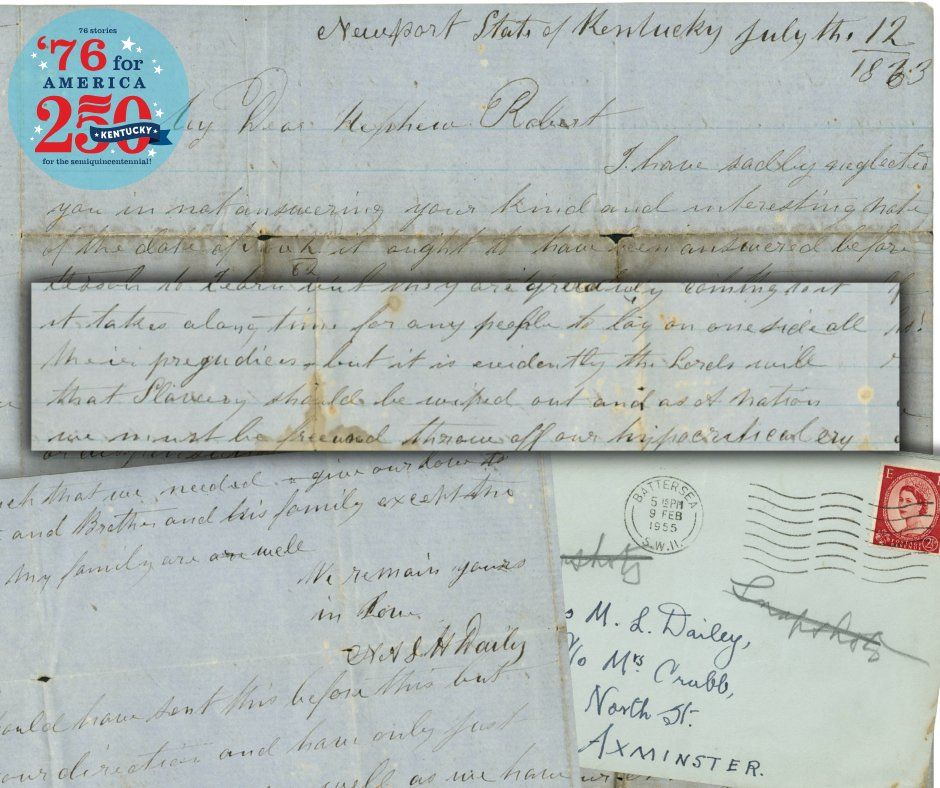 76 stories
'76 for
AMERICA
250
KENTUCKY
for the semiquincentennial!
Newport State of Kentucky July th. 12
1863
My Dear Nephew Robert
I have sadly neglected
you in not answering your kind and interesting note
of the date of it ought to have been answered before
62
lesson to learn but they are greadily coming to it
it takes along time for any people to lay on one side all
their pregudices but it is evidently the Lords will
that Slavery should be wiped out and as A Nation
we must be free and throw off our hypocritical cry
such that we needed give our love to
and Brother and his family except the
my family are are well
We remain yours
in Love
H Daily
would have sent this before this but
your direction and have only just
well as we have
BATTERSEA
5 15PM
9 FEB
1955
S.W.11.
E R
2½
Snapshots
M. L. Dailey,
c/o Mrs Crabb,
North St.
AXMINSTER.